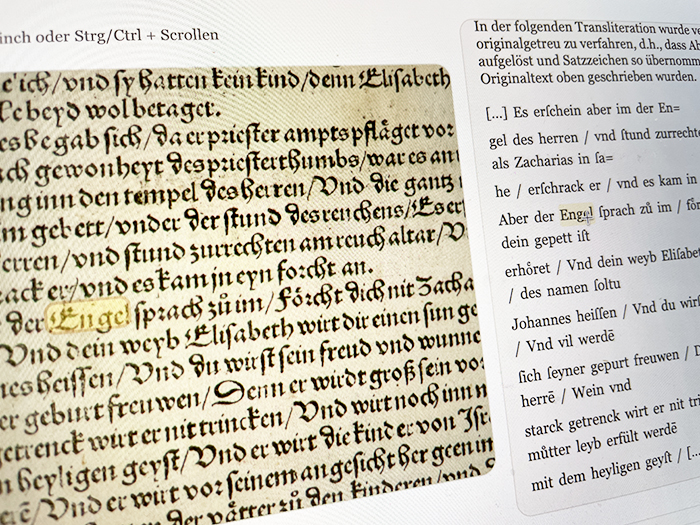 inch oder Strg/Ctrl + Scrollen
ich/vnd sy hatten kein kind/denn Elisabeth
beyd wol betaget.
es begab sich/da er priester ampts pfläget vor
gewonheyt des priesterthumbs/war es an
inn den tempel des herren/Vnd die gantz
gebett/vnder der stund des reuchens/Es er
erren/vnd stund zurrechten am reuch altar/V
er/vnd es kam jn eyn forcht an.
der Engel sprach zů im/Förcht dich nit Zacha
Vnd dein weyb Elisabeth wirt dir einen sun ge
heissen/Vnd du wirst sein freud vnd wunne
er geburt freuwen/Denn er wirdt groß sein vor
getrenck wirt er nit trincken/Vnd wirt noch inn
heyligen geyst/Vnd er wirt die kinder von Isr
Vnd er wirt vor seinem angesicht her geen in
der vätter zů den kinderen/vnd
In der folgenden Transliteration wurde ve
originalgetreu zu verfahren, d.h., dass Ab
aufgelöst und Satzzeichen so übernomm
Originaltext oben geschrieben wurden.
[...] Es erſchein aber im der En=
gel des herren / vnd ſtund zurrechte
als Zacharias in ſa=
he / erſchrack er / vnd es kam in
Aber der Engel ſprach zů im / för
dein gepett iſt
erhöret / Vnd dein weyb Eliſabet
/ des namen ſoltu
Johannes heiſſen / Vnd du wir
/ Vnd vil werdē
ſich ſeyner gepurt freuwen / D
herrē / Wein vnd
starck getrenck wirt er nit tri
můtter leyb erfült werdē
mit dem heyligen geyſt / [...